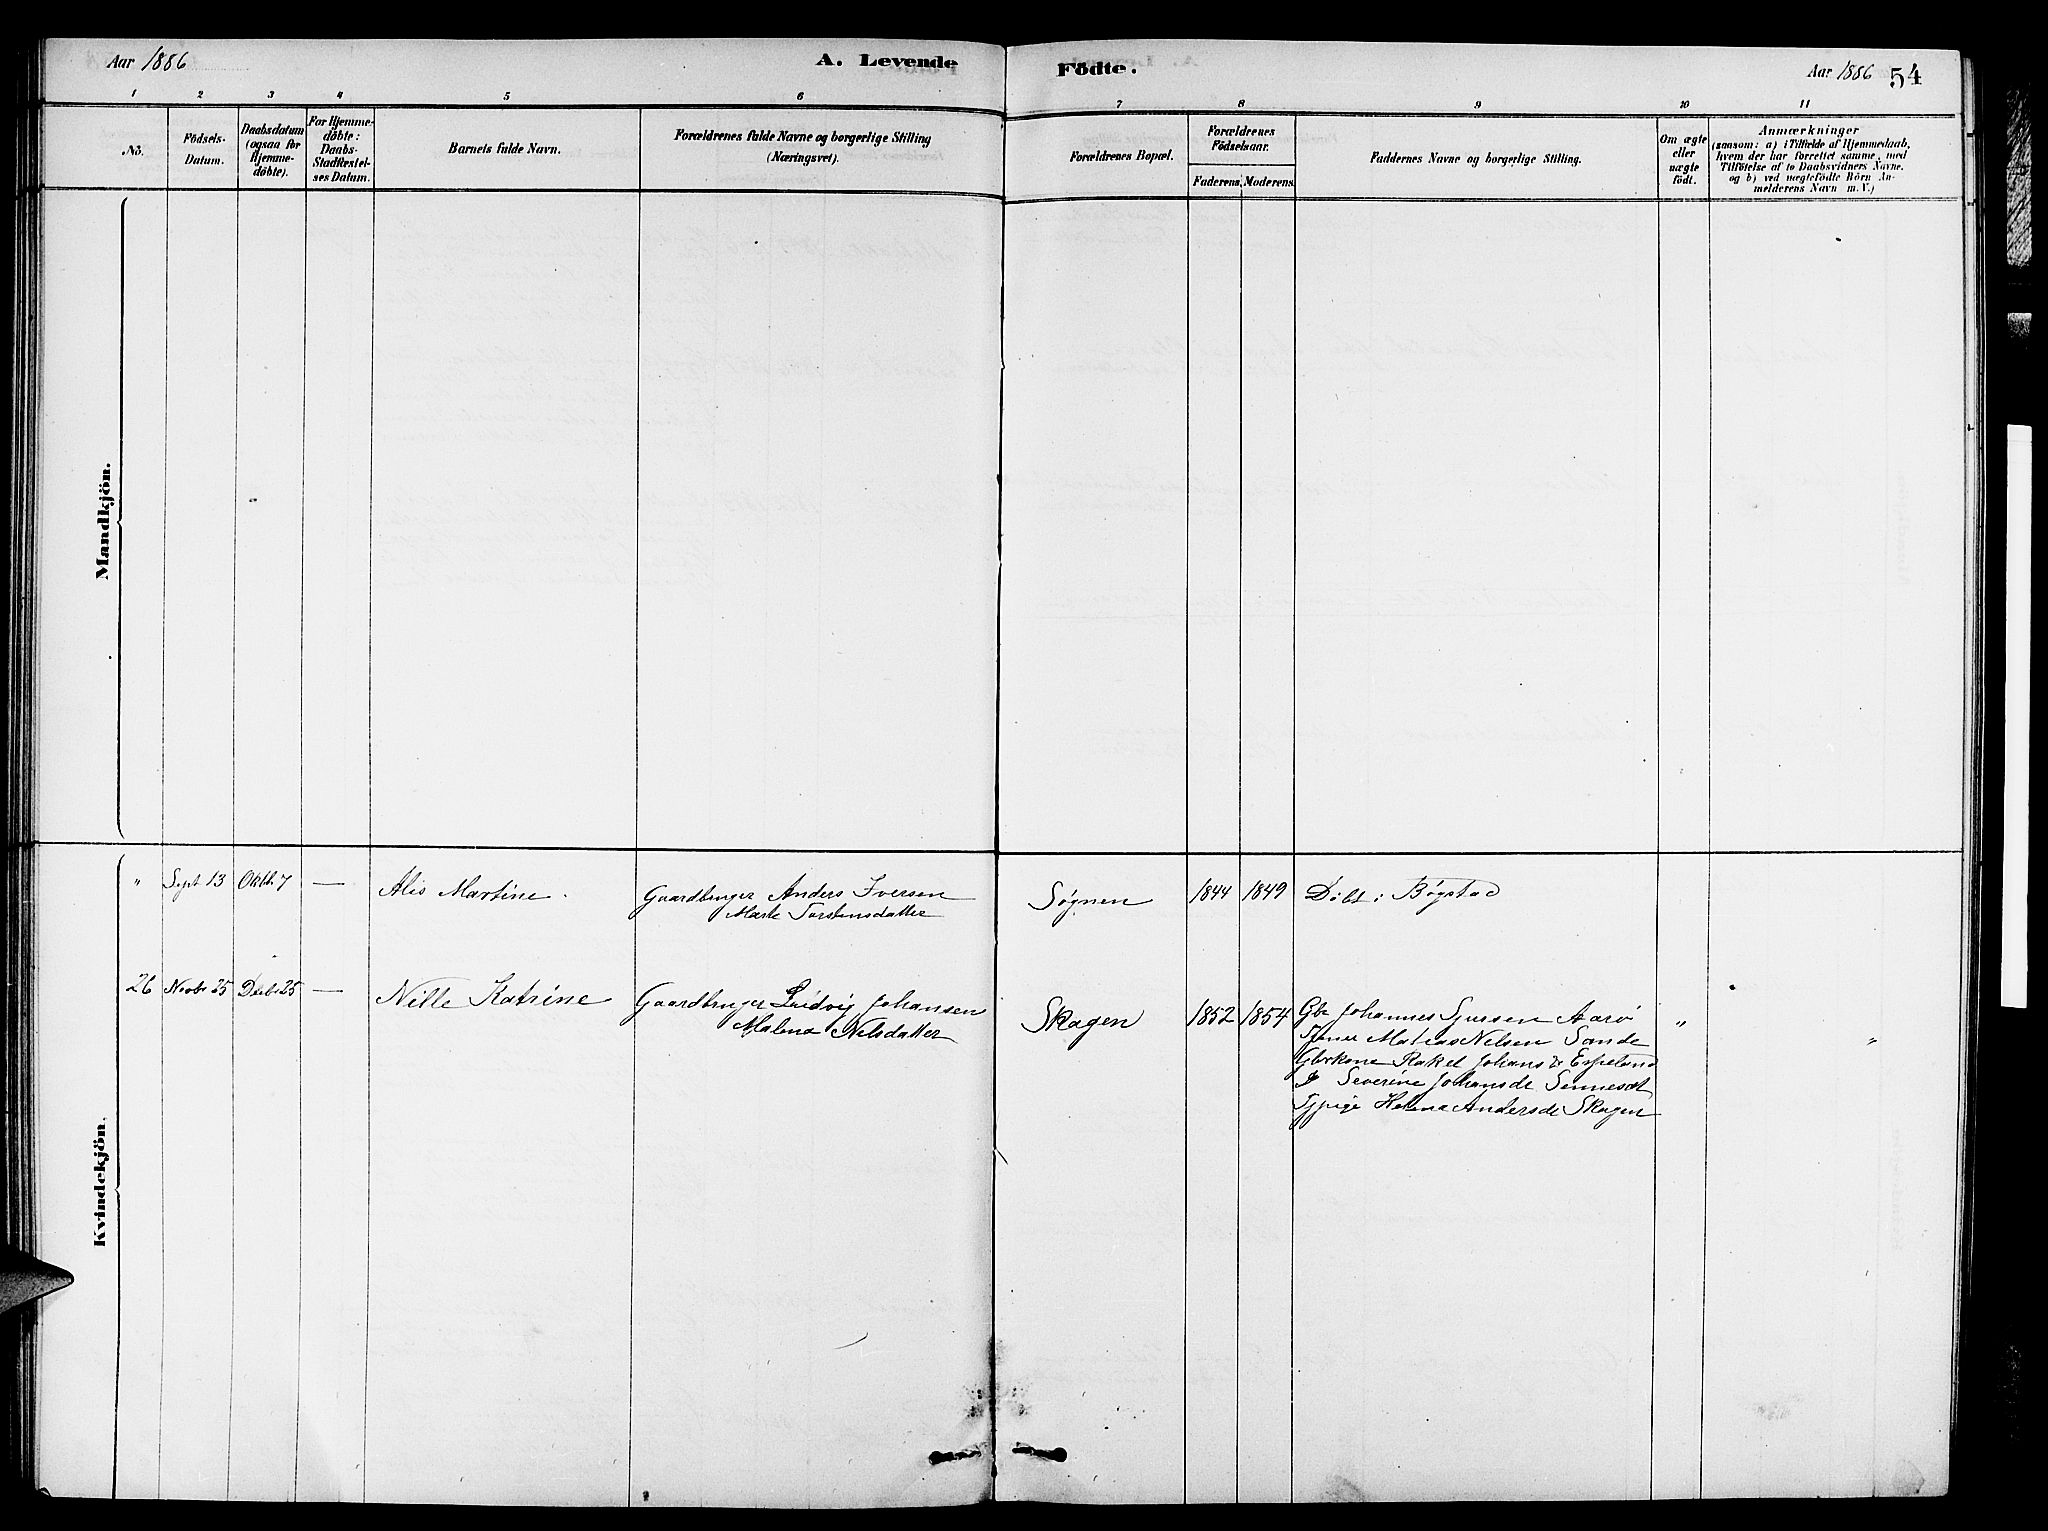 Aar 1886
A. Levende
Födte.
Aar 1886
54
1 2 3 4 5 6 7 8 9 10 11
No.
Födsels-
Datum.
Daabsdatum
(ogsaa for
Hjemme-
döbte).
For Hjemme-
döbte:
Daabs-
Stadfæstel-
ses Datum.
Barnets fulde Navn.
Forældrenes fulde Navne og borgerlige Stilling
(Næringsvei).
Forældrenes Bopæl.
Forældrenes
Födselsaar.
Faderens. Moderens.
Faddernes Navne og borgerlige Stilling.
Om ægte
eller
uægte
födt.
Anmærkninger
(saasom: a) i Tilfælde af Hjemmedaab,
hvem der har forrettet samme, med
Tilföielse af to Daabsvidners Navne,
og b) ved uægtefödte Börn An-
melderens Navn m. V.)
Mandkjön.
Kvindekjön.
" Sept 13 Oktb 7 — Alis Martine Gaardbruger Anders Iversen
Marte Torstensdatter
Søgnen 1844 1849 Døbt i Bøgstad
26 Novbr 25 Decb 25 — Nille Katrine Gaardbruger Ludvig Johansen
Malena Nilsdatter
Skagen 1852 1854 Gbr Johannes Sjursen Aarø "
Tjener Matias Nelsen Sande "
Gbrkone Rakel Johansd Espeland
Severine Johansdt Sennesæt
Tjpige Helena Andersdt Skagen